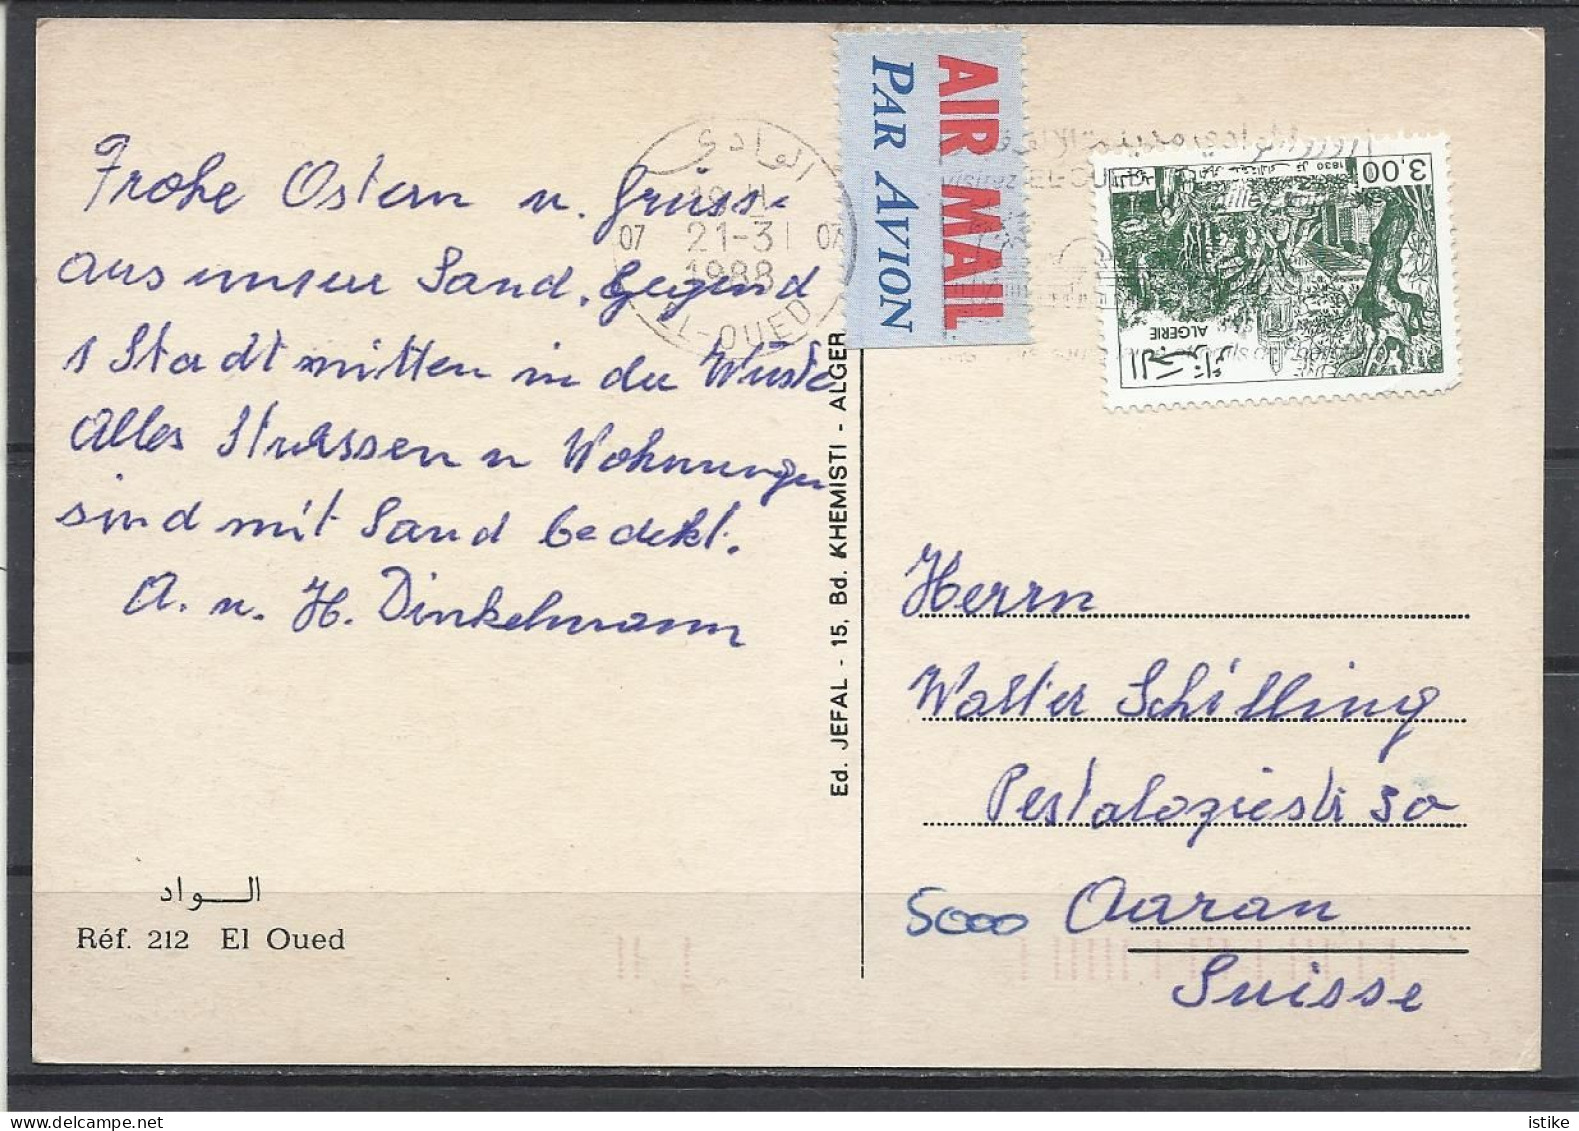 Frohe Ostern u. Grüsse
aus unser Sand. Gegend
1 Stadt mitten in der Wüste
Alles Strassen u Wohnungen
sind mit Sand bedekt.
A. u. H. Dinkelmann
الـواد
Réf. 212 El Oued
Ed. JEFAL - 15, Bd. KHEMISTI - ALGER
AIR MAIL
PAR AVION
الوادي
07 21-3 07
1988
EL-OUED
visitez EL-OU
3,00
1830
ALGERIE
الجزائر
Herrn
Walter Schilling
Pestalozziestr 30
5000 Aarau
Suisse
istike